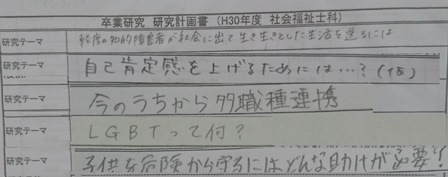 卒業研究 研究計画書（H30年度 社会福祉士科）
研究テーマ 軽度の知的障害者が社会に出て生き生きとした生活を送るには
研究テーマ 自己肯定感を上げるためには…？（仮）
研究テーマ 今のうちから多職種連携
研究テーマ LGBTって何？
研究テーマ 子供を危険から守るにはどんな助けが必要？